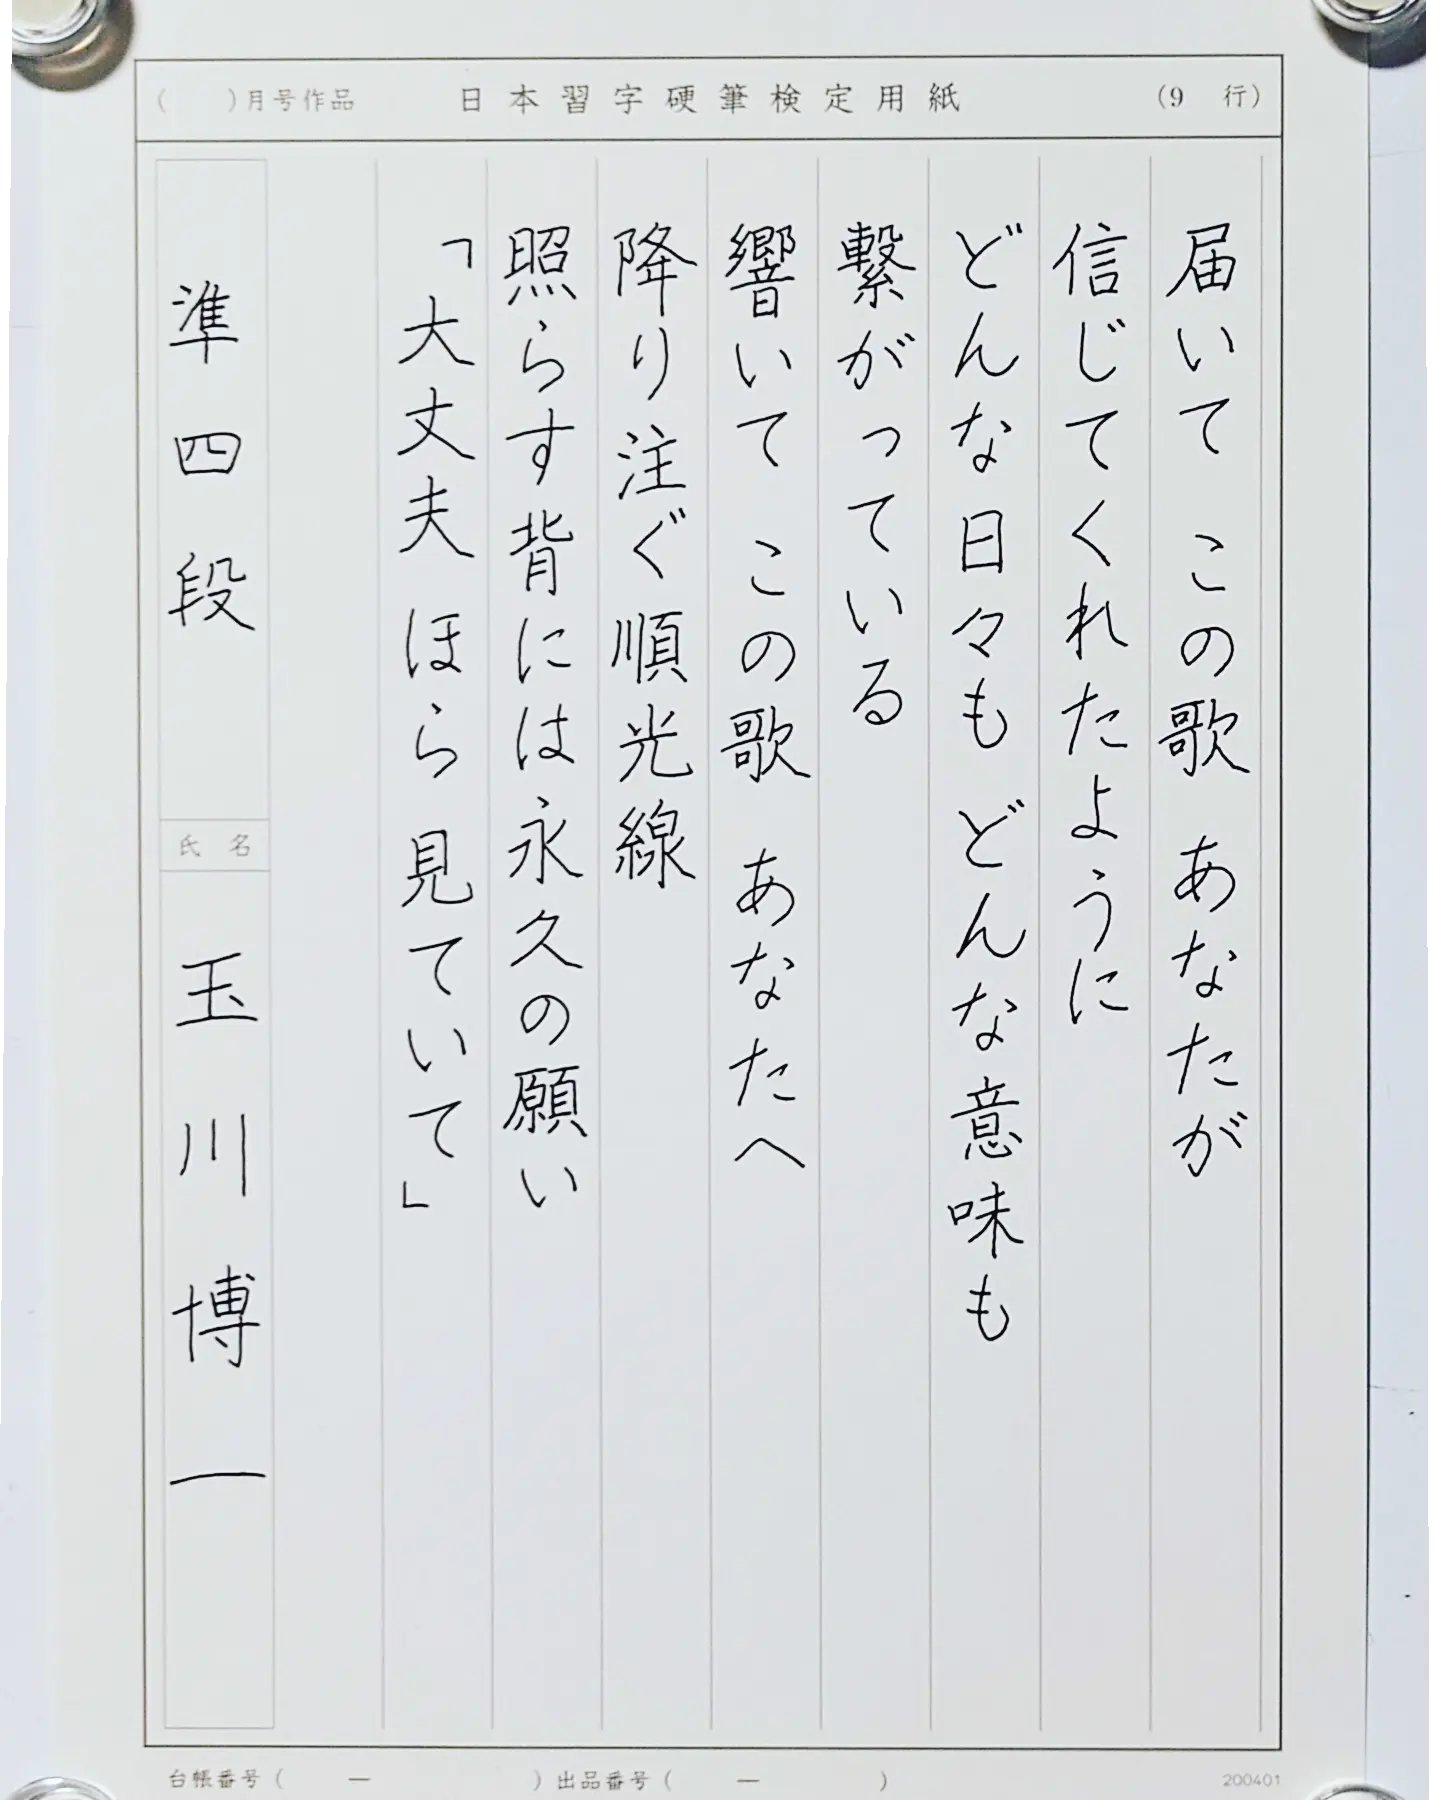 ( )月号作品 日本習字硬筆検定用紙 (9 行)
届いて この歌 あなたが
信じてくれたように
どんな日々も どんな意味も
繋がっている
響いて この歌 あなたへ
降り注ぐ順光線
照らす背には永久の願い
「大丈夫 ほら 見ていて」
準四段
氏名
玉川博一
台帳番号( ー ) 出品番号( ー )
200401